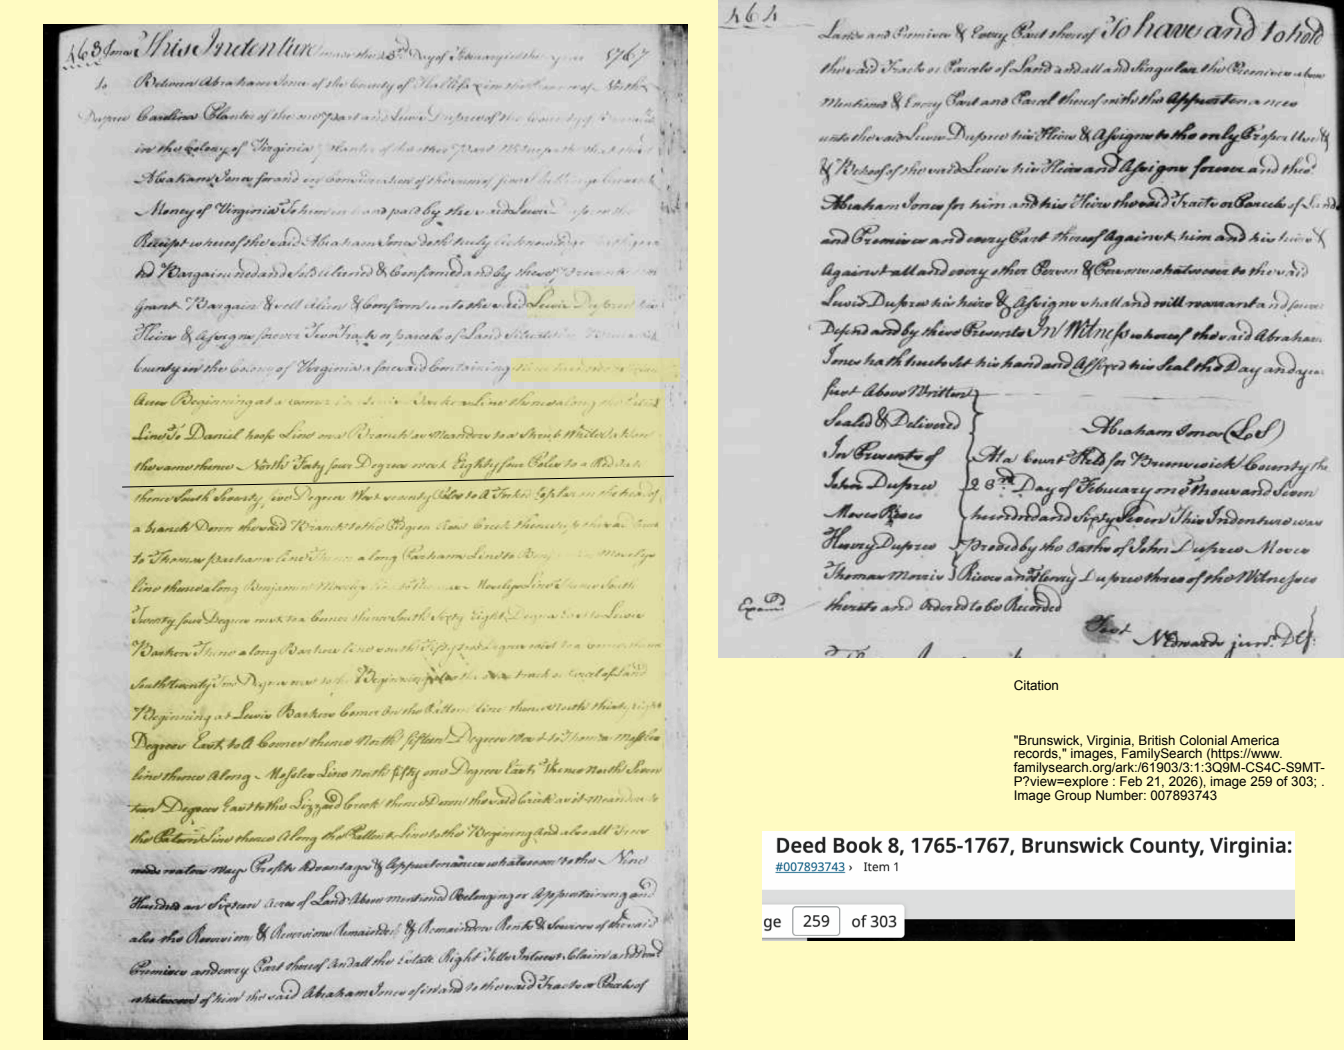 463 Jones This Indenture made the 23rd Day of February in the year 1767
to Between Abraham Jones of the County of Hallifax in the Province of North
Dupree Carolina Planter of the one part and Lewis Dupree of the County of Brunswick
in the Colony of Virginia planter of the other Part Witnesseth that the said
Abraham Jones for and in Consideration of the sum of
Money of Virginia To him in hand paid by the said Lewis the
Receipt whereof the said Abraham Jones doth truly acknowledge
hd Bargained and sold aliened & Confirmed and by these Presents
Grant Bargain & sell alien & Confirm unto the said Lewis Dupree his
Heirs & Assigns forever Two Tracts or parcels of Land Situate in Brunswick
County in the Colony of Virginia aforesaid Containing nine hundred
Acres Beginning at a corner in line thence along the
Line To Daniel hoofs Line on a Branch as Meanders to a Shrub White Oak on
the same thence North Forty four Degrees west Eighty four Poles to a Red Oak
thence South Seventy five Degrees West seventy Poles to A Forked Poplar on the head of
a branch Down the said Branch to the Pidgeon Roos Creek thence up the said
to Thomas parham line Thence along Parhams Line to Moselys
line thence along Benjamin Moselys line to Moselys Line thence South
Twenty four Degrees west to a Corner thence South Sixty Eight Degrees East to Lewis
Barker Thence along Barkers line south Degrees west to a corner thence
South twenty Degrees west to the Beginning the track or Parcel of Land
Beginning at Lewis Barkers Corner on the Pattent line thence North thirty eight
Degrees East to A Corner thence North fifteen Degrees West to Thomas Moseleys
line thence Along Mosleys Line north fifty one Degrees East Thence North Seven
teen Degrees East to the Lizzard creek thence Down the said Crick as it Meanders to
the Patent Line thence Along the Pattent Line to the Begining And also all Trees
woods waters ways Profits Advantages & Appurtenances whatsoever to the Nine
Hundred an Sixteen Acres of Land Above mentiond Belonging or Appertaining and
also the Revercion & Revercions Remainder & Remainders Rents & Services of the said
Premises and every Part thereof And all the Estate Right Title Interest Claim and Demand
whatsoever of him the said Abraham Jones of in and to the said Tracts or Parcels of
464 Lands and Premises & Every Part thereof To have and to hold
the said Tracts or Parcels of Land and all and Singular the Premises above
Mentioned & Every Part and Parcel thereof with the Appurtenances
unto the said Lewis Dupree his Heirs & Assigns to the only Proper Use &
& Behoof of the said Lewis his Heirs and Assigns forever and the
Abraham Jones for him and his Heirs the said Tracts or Parcels of Land
and Premises and every Part thereof Against him and his heirs &
Against all and every other Person & Persons whatsoever to the said
Lewis Dupree his heirs & Assigns shall and will warrant and forever
Defend and by these Presents In Witness whereof the said Abraham
Jones hath hereto Set his hand and Affixed his Seal the Day and year
first Above Written
Sealed & Delivered
Abraham Jones (LS)
In Presents of
At a Court Held for Brunswick County the
John Dupree
23rd Day of February one Thousand Seven
Moses Rives
hundred and Sixty Seven This Indenture was
Henry Dupree
Proved by the Oaths of John Dupree Moses
Thomas Morris
Rives and Henry Dupree three of the Witnesses
Examd thereto and Ordered to be Recorded
Test
N Edwards junr. D Cl.
Citation
"Brunswick, Virginia, British Colonial America
records," images, FamilySearch (https://www.
familysearch.org/ark:/61903/3:1:3Q9M-CS4C-S9MT-
P?view=explore : Feb 21, 2026), image 259 of 303; .
Image Group Number: 007893743
Deed Book 8, 1765-1767, Brunswick County, Virginia:
#007893743 › Item 1
ge 259 of 303